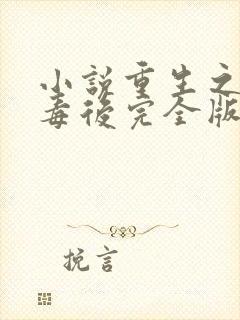 小說重生之
毒後完全版
挽言